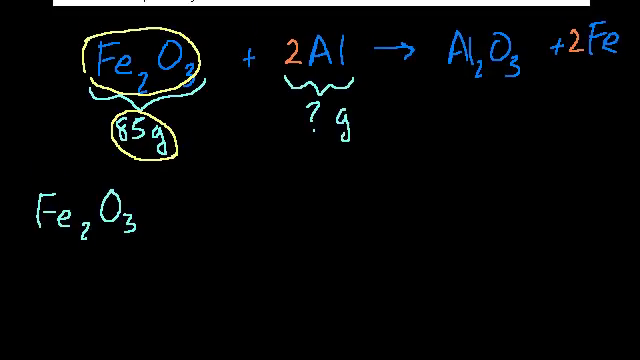 Fe₂O₃ + 2Al → Al₂O₃ + 2Fe
85g ? g
Fe₂O₃